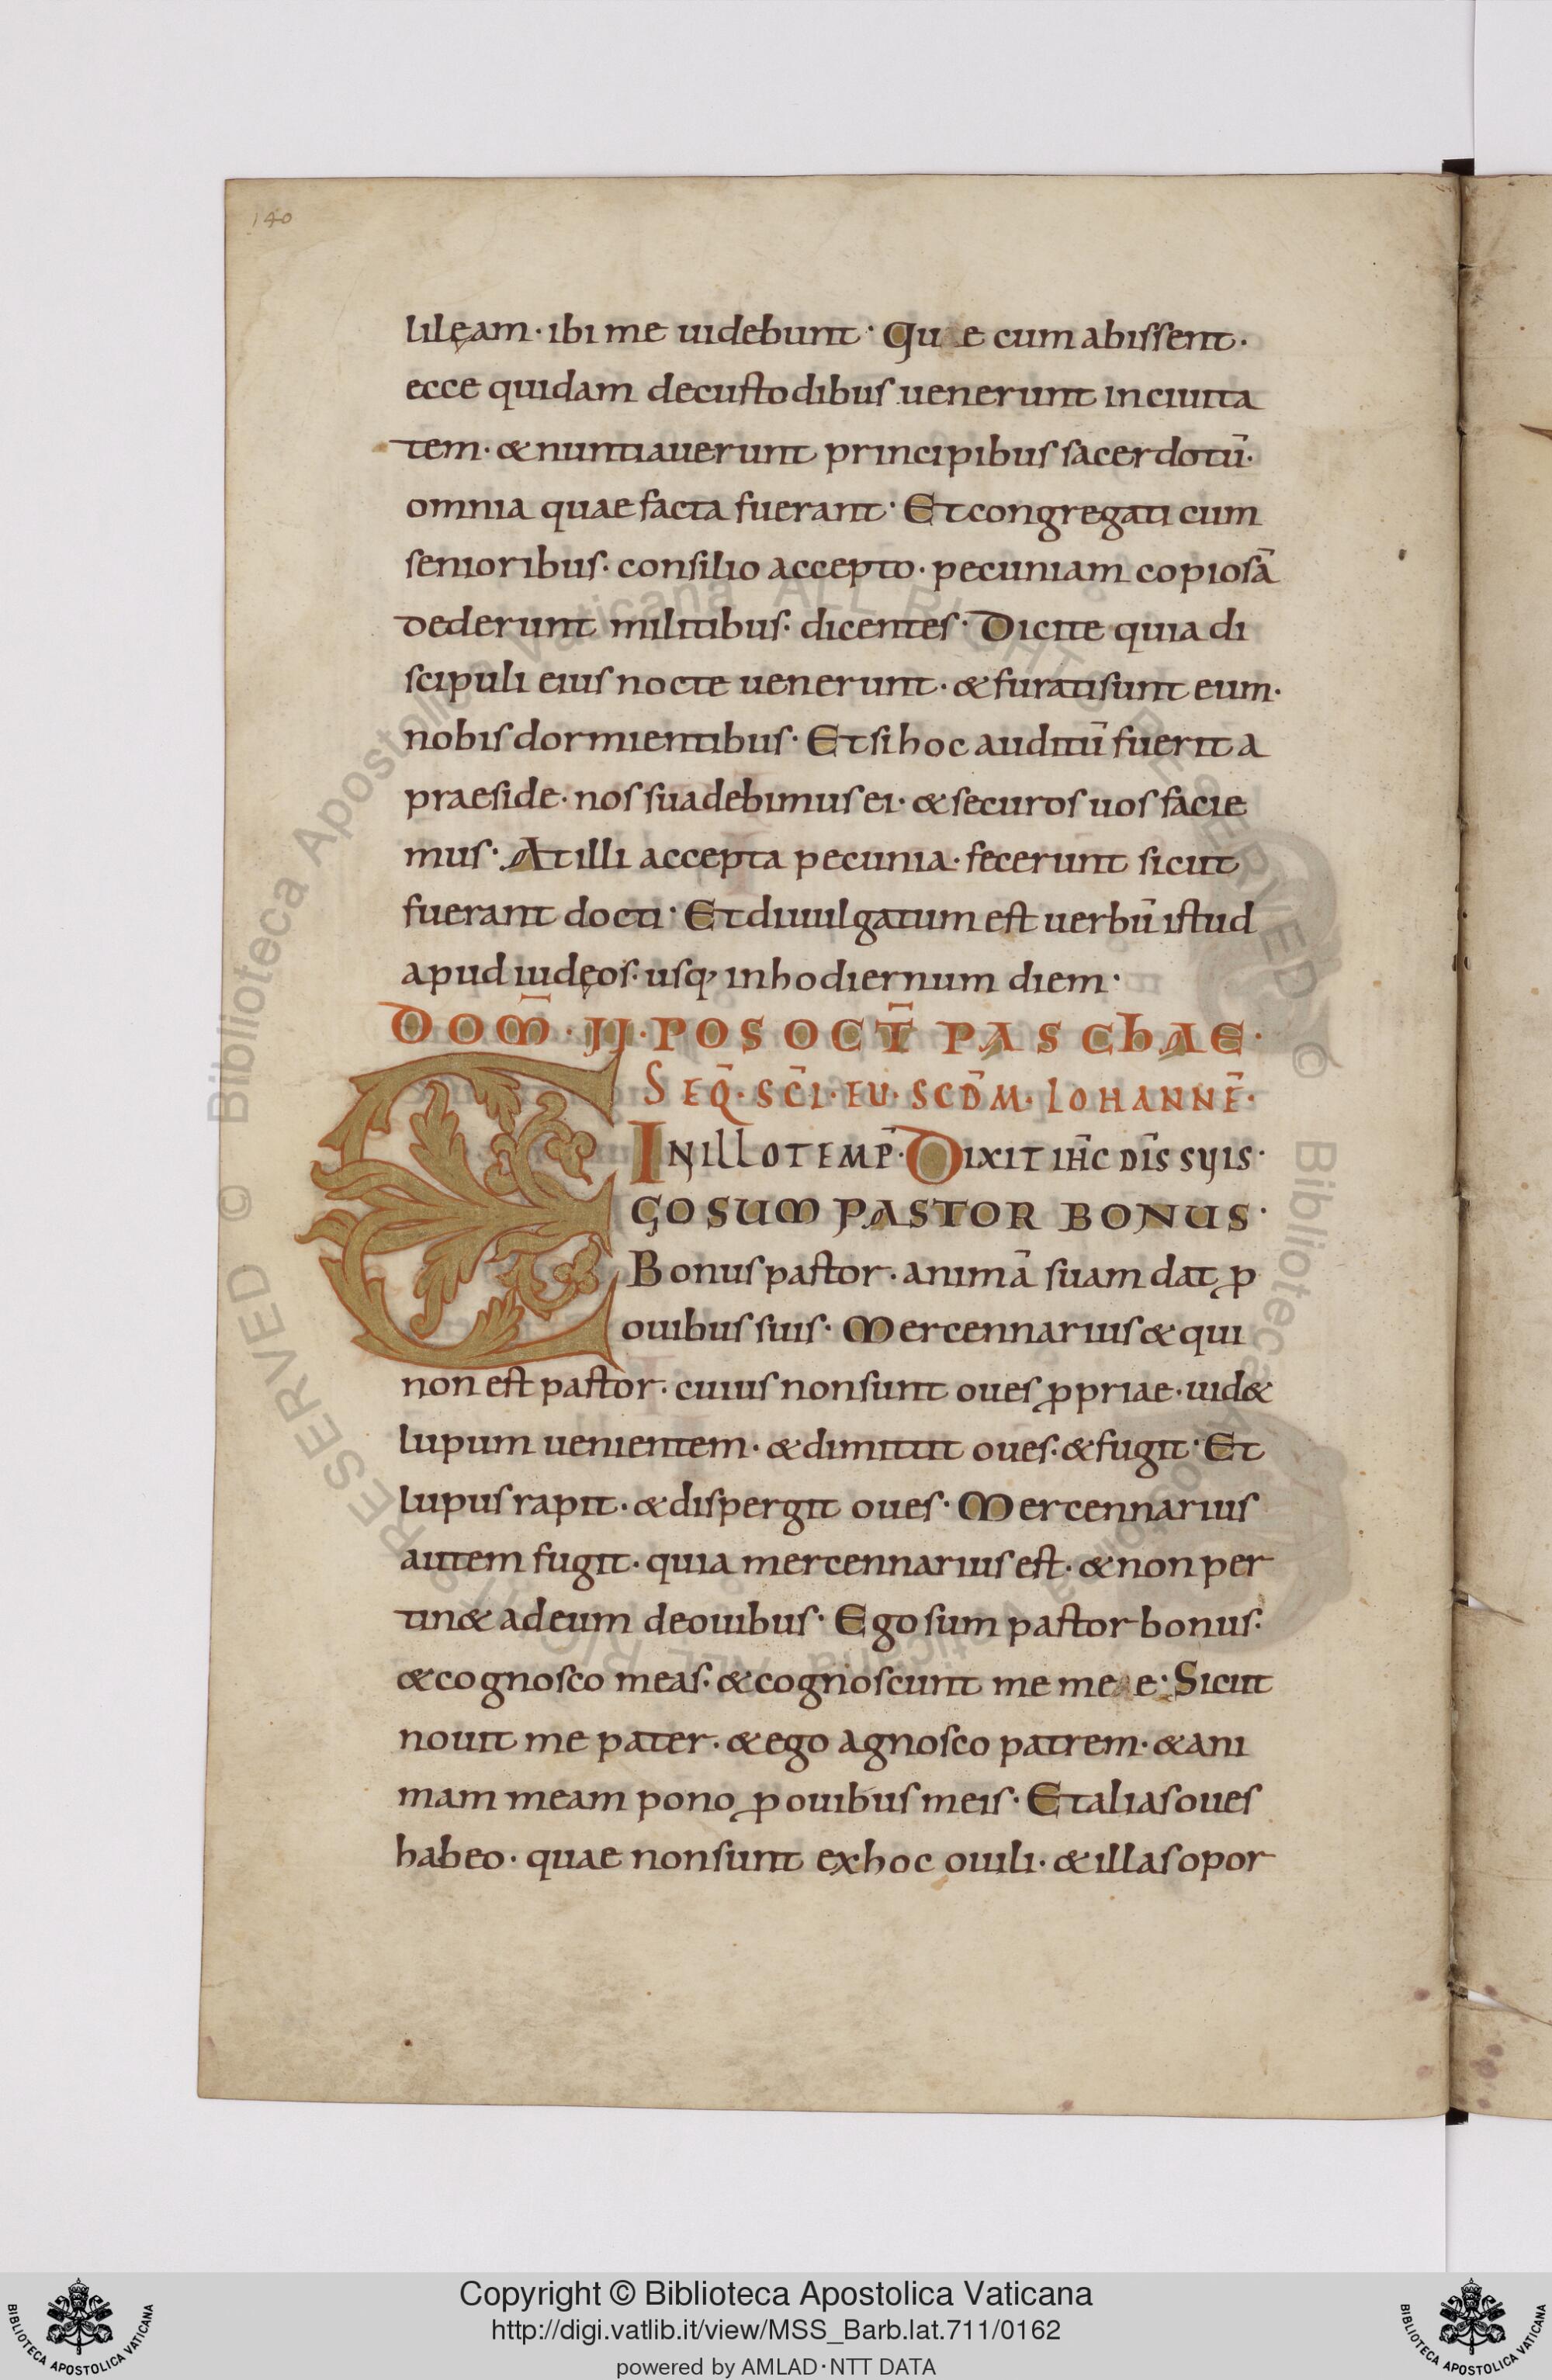 140
lilęam · ibi me uidebunt · Qu e cum abissent ·
ecce quidam decustodibus uenerunt inciuita
tem · & nuntiauerunt principibus sacerdotū ·
omnia quae facta fuerant · Et congregati cum
senioribus · consilio accepto · pecuniam copiosā
dederunt militibus · dicentes · Dicite quia di
scipuli eius nocte uenerunt · & furatisunt eum ·
nobis dormientibus · Et si hoc auditū fuerit a
praeside · nos suadebimus ei · & securos uos facie
mus · At illi accepta pecunia · fecerunt sicut
fuerant docti · Et diuulgatum est uerbū istud
apud iudęos · usq; inhodiernum diem ·
DOM̄ · II · POS OCT̄ PASCHAE ·
SEQ̄ · SC̄I · EU · SCD̄M · IOHANNĒ ·
IN ILLO TEMP̄ · DIXIT IH̄C DIS̄ SUIS ·
EGO SUM PASTOR BONUS ·
Bonus pastor · animā suam dat ꝓ
ouibus suis · Mercennarius & qui
non est pastor · cuius nonsunt oues ꝓpriae · uid&
lupum uenientem · & dimittit oues · & fugit · Et
lupus rapit · & dispergit oues · Mercennarius
autem fugit · quia mercennarius est · & non per
tin& adeum deouibus · Ego sum pastor bonus ·
& cognosco meas · & cognoscunt me me e · Sicut
nouit me pater · & ego agnosco patrem · & ani
mam meam pono ꝓ ouibus meis · Et alias oues
habeo · quae nonsunt exhoc ouili · & illas opor
© Biblioteca Apostolica Vaticana ALL RIGHTS RESERVED © Biblioteca Apostolica Vaticana ALL RIGHTS RESERVED
Copyright © Biblioteca Apostolica Vaticana
http://digi.vatlib.it/view/MSS_Barb.lat.711/0162
powered by AMLAD·NTT DATA
BIBLIOTECA APOSTOLICA VATICANA
BIBLIOTECA APOSTOLICA VATICANA